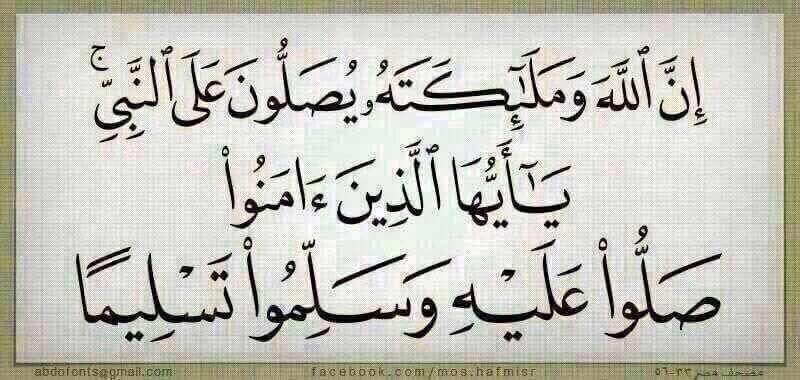 إِنَّ ٱللَّهَ وَمَلَـٰٓئِكَتَهُۥ يُصَلُّونَ عَلَى ٱلنَّبِىِّۚ
يَـٰٓأَيُّهَا ٱلَّذِينَ ءَامَنُوا۟
صَلُّوا۟ عَلَيْهِ وَسَلِّمُوا۟ تَسْلِيمًا
abdofonts@gmail.com facebook.com/mos.hafmisr مصحف مصر ٣٣-٥٦